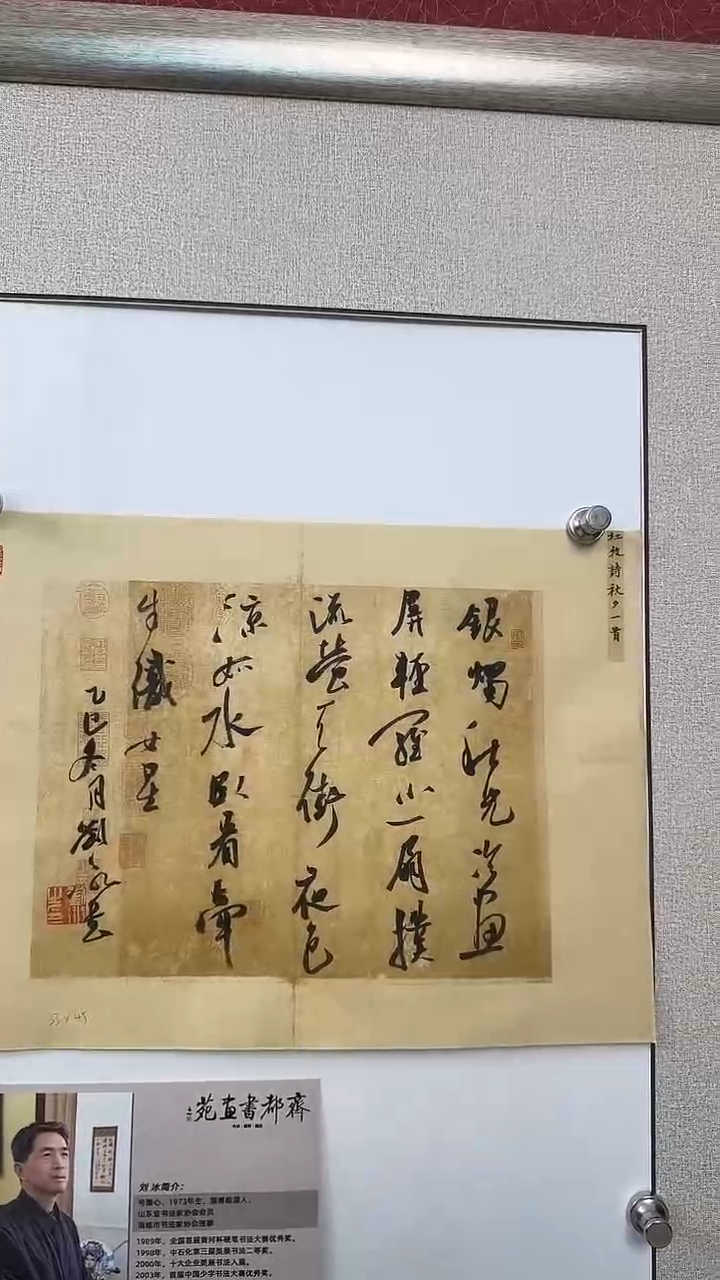 杜牧詩秋夕一首
銀燭秋光冷畫
屏輕羅小扇撲
流螢天街夜色
涼如水卧看牽
牛織女星
乙巳冬月劉冰書
53×45
齊都書画苑
刘 冰简介：
1973年生，淄博临淄人，
山东省书法家协会会员
淄博市书法家协会理事
1989年，全国首届黄河杯硬笔书法大赛优秀奖。
1998年，中石化第三届美展书法二等奖。
2000年，十大企业美展书法入展。
2003年，首届中国少字书法大赛优秀奖。